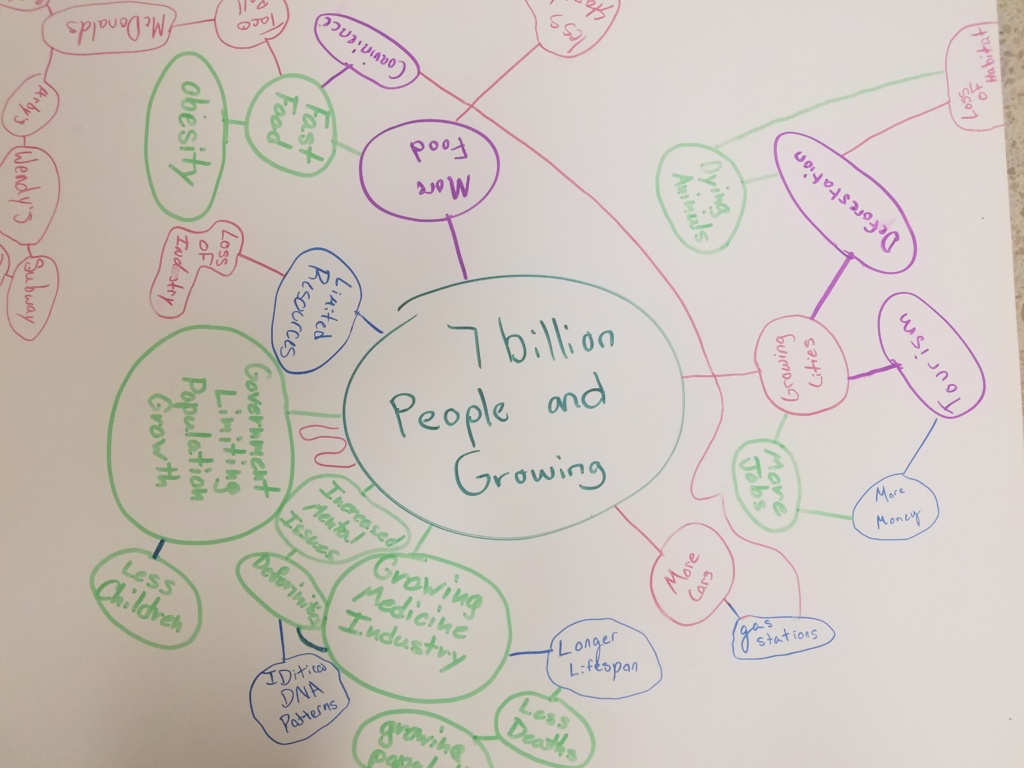 7 billion
People and
Growing
More
Food
Fast
Food
Obesity
Convinience
Taco
Bell
McDonalds
Arby's
Wendy's
Subway
Less
Limited
Resources
Loss
OF
Industry
Government
Limiting
Population
Growth
Less
Children
Increased
Mental
Issues
Growing
Medicine
Industry
DNA
Patterns
Longer
Lifespan
Less
Deaths
growing
More
Cars
gas
stations
Growing
Cities
Deforestation
Dying
Animals
Loss
of
Habitat
Tourism
More
Money
More
Jobs